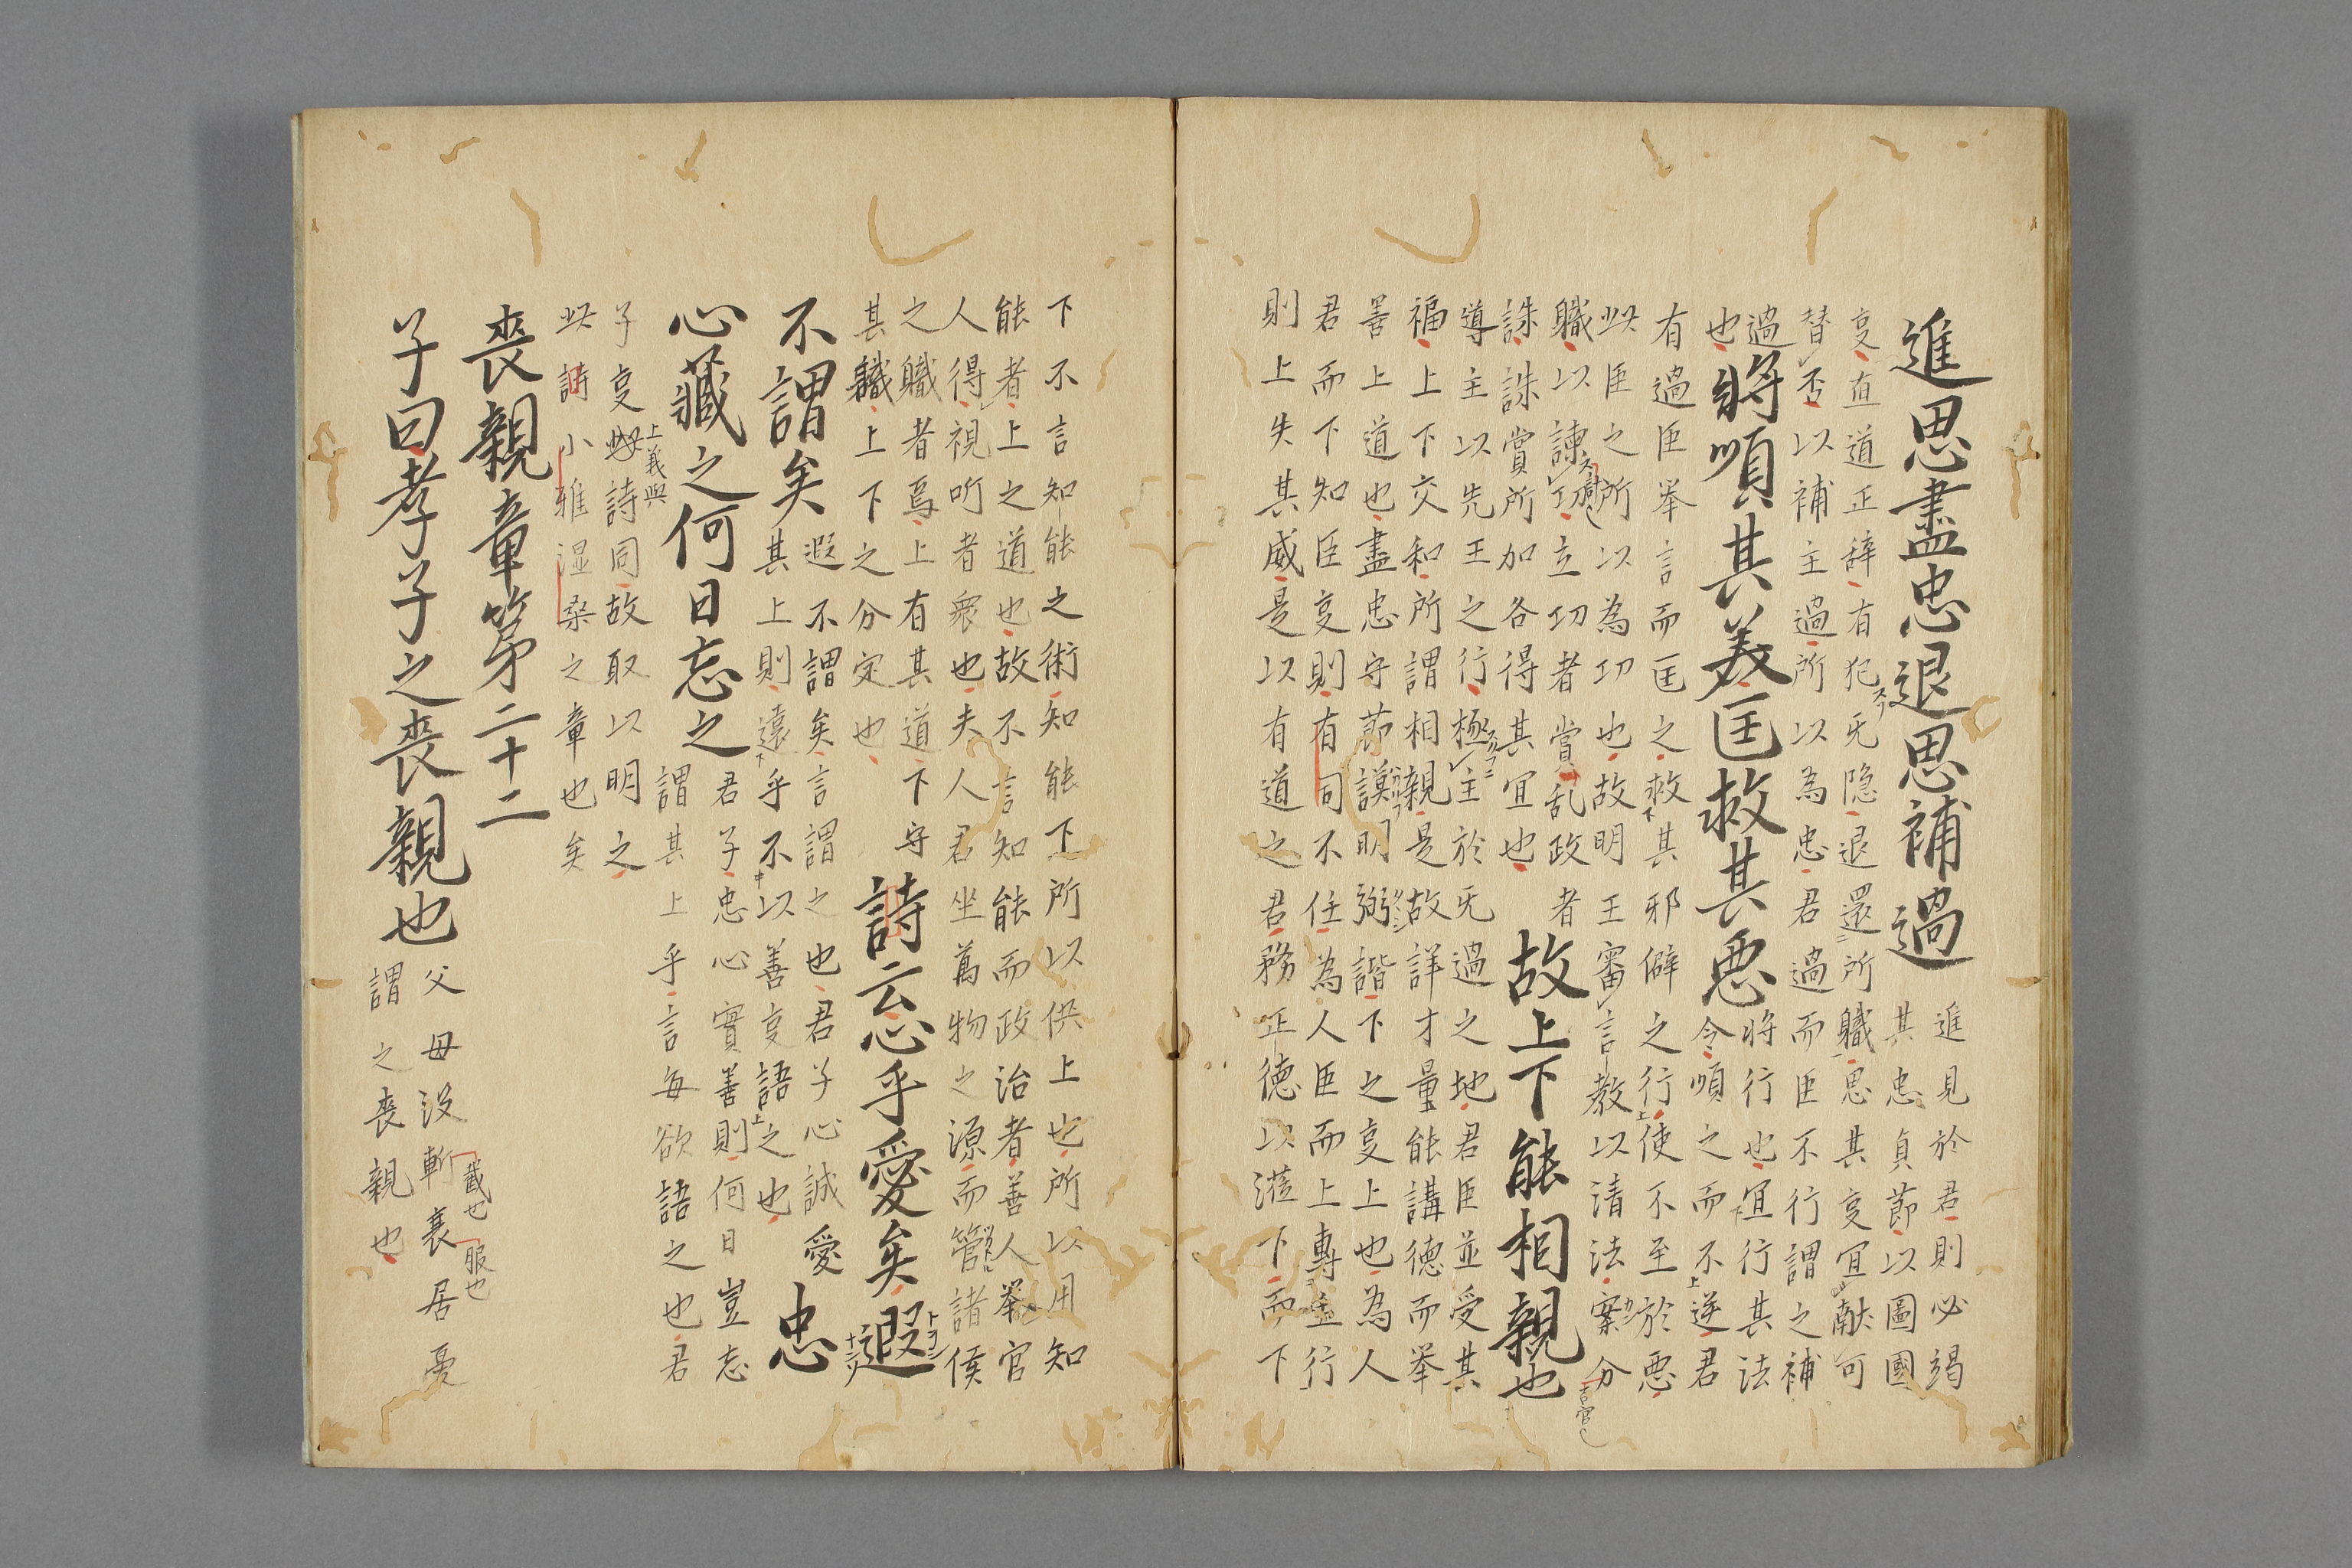 進思盡忠退思補過
進見於君則必竭
其忠貞莭以圖國
㕝直道正辞有犯旡隠退還所職思其㕝宜献可
替否以補主過所以為忠君過而臣不行謂之補
過
也
將順其美匡救其悪
将行也宜行其法
令順之而不逆君
有過臣举言而匡之救其邪僻之行使不至於悪
此臣之所以為功也故明王審言教以清法案分
職以諫功立功者賞乱政者
誅誅賞所加各得其宜也
故上下能相親也
導主以先王之行極主於旡過之地君臣並受其
福上下交和所謂相親是故詳才量能講徳而举
善上道也盡忠守莭謨明弼諧下之㕝上也為人
君而下知臣㕝則有司不任為人臣而上専主行
則上失其威是以有道之君務正徳以涖下而下
下不言知能之術知能下所以供上也所以用知
能者上之道也故不言知能而政治者善人举官
人得視听者衆也夫人君坐萬物之源而管諸侯
之職者焉上有其道下守
其職上下之分定也
詩云心乎愛矣遐
不謂矣
遐不謂矣言謂之也君子心誠愛
其上則遠乎不以善㕝語之也
忠
心藏之何日忘之
君子忠心實善則何日豈志
謂其上乎言每欲語之也君
子㕝上義與此詩同故取以明之
此詩小雅湿桒之章也矣
喪親章第二十二
子曰孝子之喪親也
父毋没斬衰居憂
截也
服也
謂之喪親也